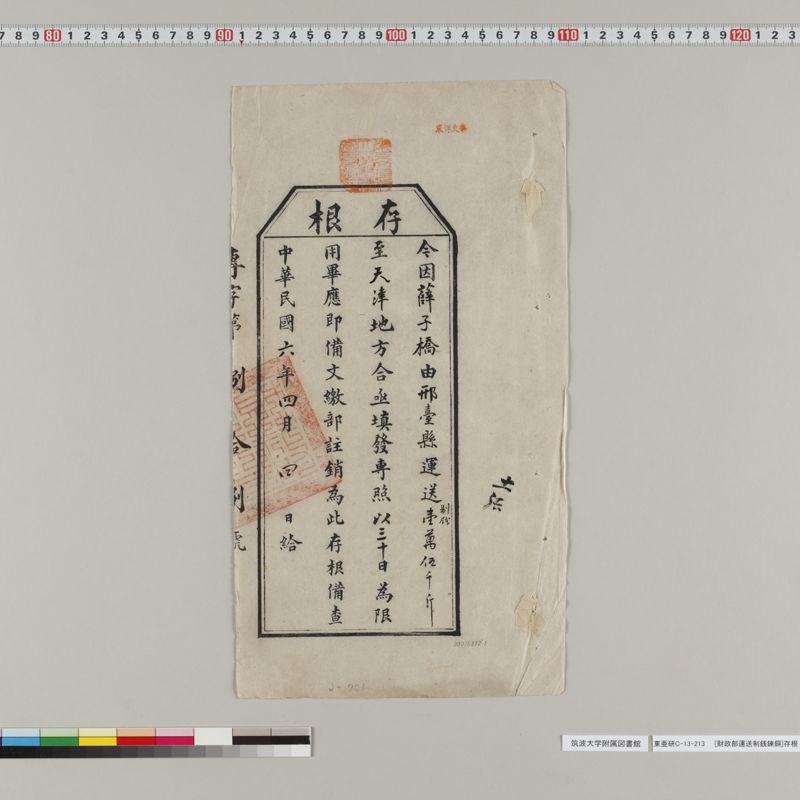 7 8 9 80 1 2 3 4 5 6 7 8 9 90 1 2 3 4 5 6 7 8 9 100 1 2 3 4 5 6 7 8 9 110 1 2 3 4 5 6 7 8 9 120 1 2 3
存根
今因薛子橋由邢臺縣運送制錢壹萬伍千斤
至天津地方合亟填發專照以三十日為限
用畢應即備文繳部註銷為此存根備查
中華民國六年四月 日給
專字第捌拾捌號
筑波大学附属図書館
東亜研C-13-213 [財政部運送制銭錬銅]存根